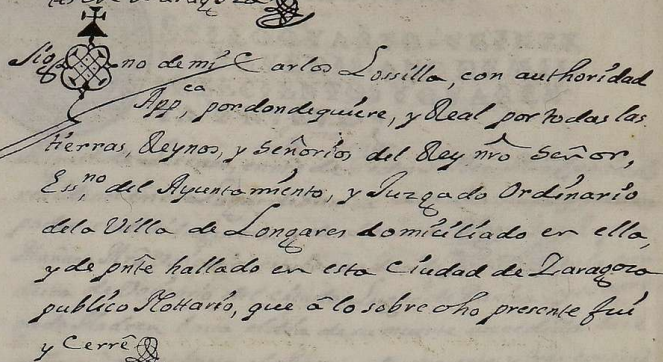 Sig no de mi Carlos Lossilla, con authoridad
App,ca por donde quiere, y Real por todas las
tierras, Reynos, y Señoríos del Rey nro Señor,
Ess,no del Ayuntamiento, y Juzgado Ordinario
dela Villa de Longares domiciliado en ella,
y de pnte hallado en esta Ciudad de Zaragoza
publico Nottario, que â lo sobre dho presente fui
y Cerrê